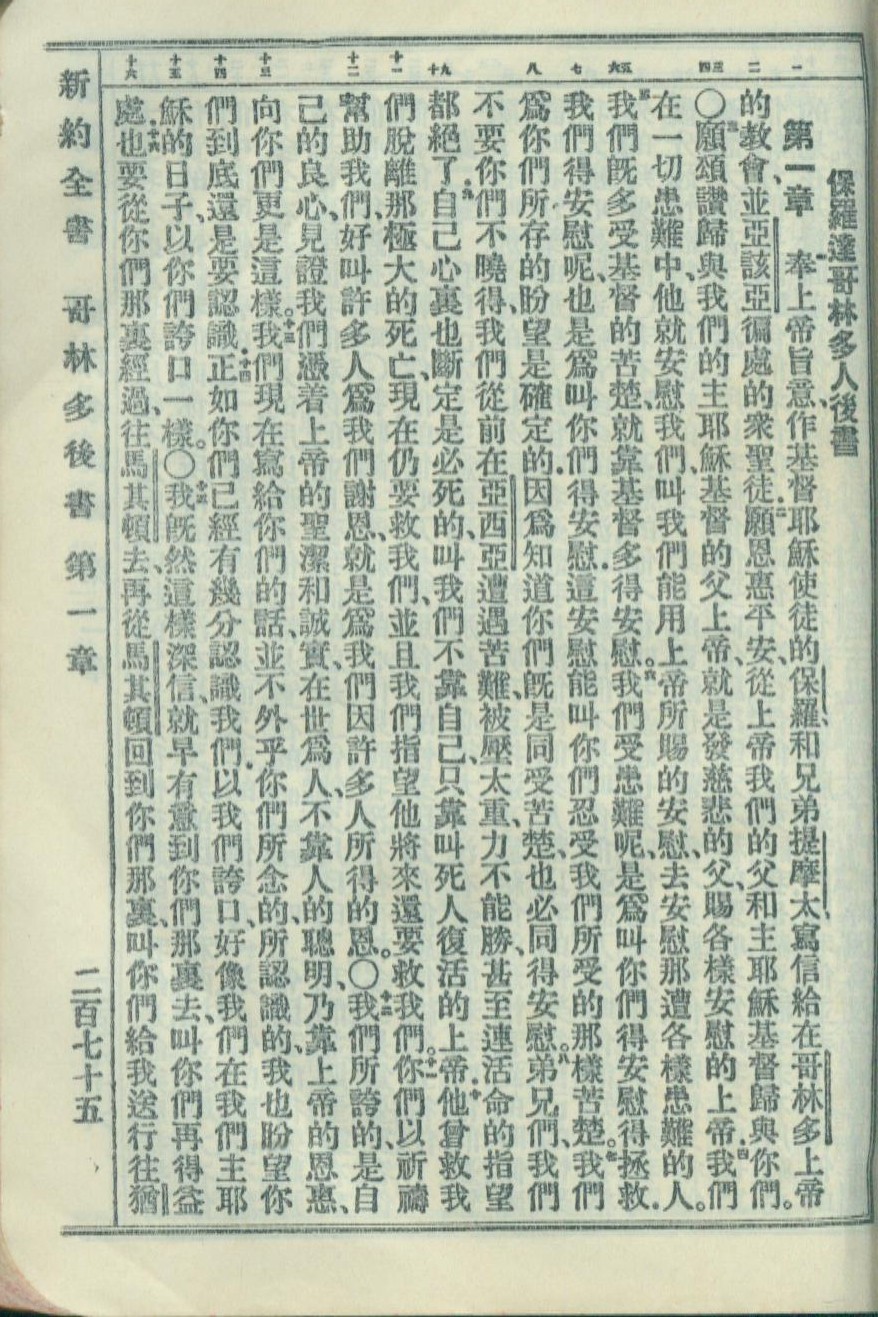 保羅達哥林多人後書
第一章 奉上帝旨意、作基督耶穌使徒的保羅、和兄弟提摩太寫信給在哥林多上帝
的教會、並亞該亞徧處的衆聖徒願恩惠平安、從上帝我們的父、和主耶穌基督歸與你們。
〇願頌讚歸與我們的主耶穌基督的父上帝、就是發慈悲的父、賜各樣安慰的上帝我們
在一切患難中、他就安慰我們、叫我們能用上帝所賜的安慰、去安慰那遭各樣患難的人。
我們旣多受基督的苦楚、就靠基督多得安慰。我們受患難呢、是爲叫你們得安慰得拯救
我們得安慰呢、也是爲叫你們得安慰這安慰能叫你們忍受我們所受的那樣苦楚。我們
爲你們所存的盼望是確定的因爲知道你們旣是同受苦楚、也必同得安慰。弟兄們、我們
不要你們不曉得、我們從前在亞西亞遭遇苦難、被壓太重、力不能勝、甚至連活命的指望
都絕了自己心裏也斷定是必死的、叫我們不靠自己、只靠叫死人復活的上帝他曾救我
們脫離那極大的死亡、現在仍要救我們、並且我們指望他將來還要救我們。你們以祈禱
幫助我們、好叫許多人爲我們謝恩、就是爲我們因許多人所得的恩。〇我們所誇的、是自
己的良心、見證我們憑着上帝的聖潔和誠實、在世爲人、不靠人的聰明、乃靠上帝的恩惠、
向你們更是這樣。我們現在寫給你們的話、並不外乎你們所念的所認識的、我也盼望你
們到底還是要認識正如你們已經有幾分認識我們以我們誇口、好像我們在我們主耶
穌的日子、以你們誇口一樣。〇我旣然這樣深信、就早有意到你們那裏去、叫你們再得益
處也要從你們那裏經過、往馬其頓去、再從馬其頓回到你們那裏、叫你們給我送行往猶
新約全書 哥林多後書 第一章 二百七十五
一 二 三四 五六 七 八 九十 十一 十二 十三 十四 十五 十六